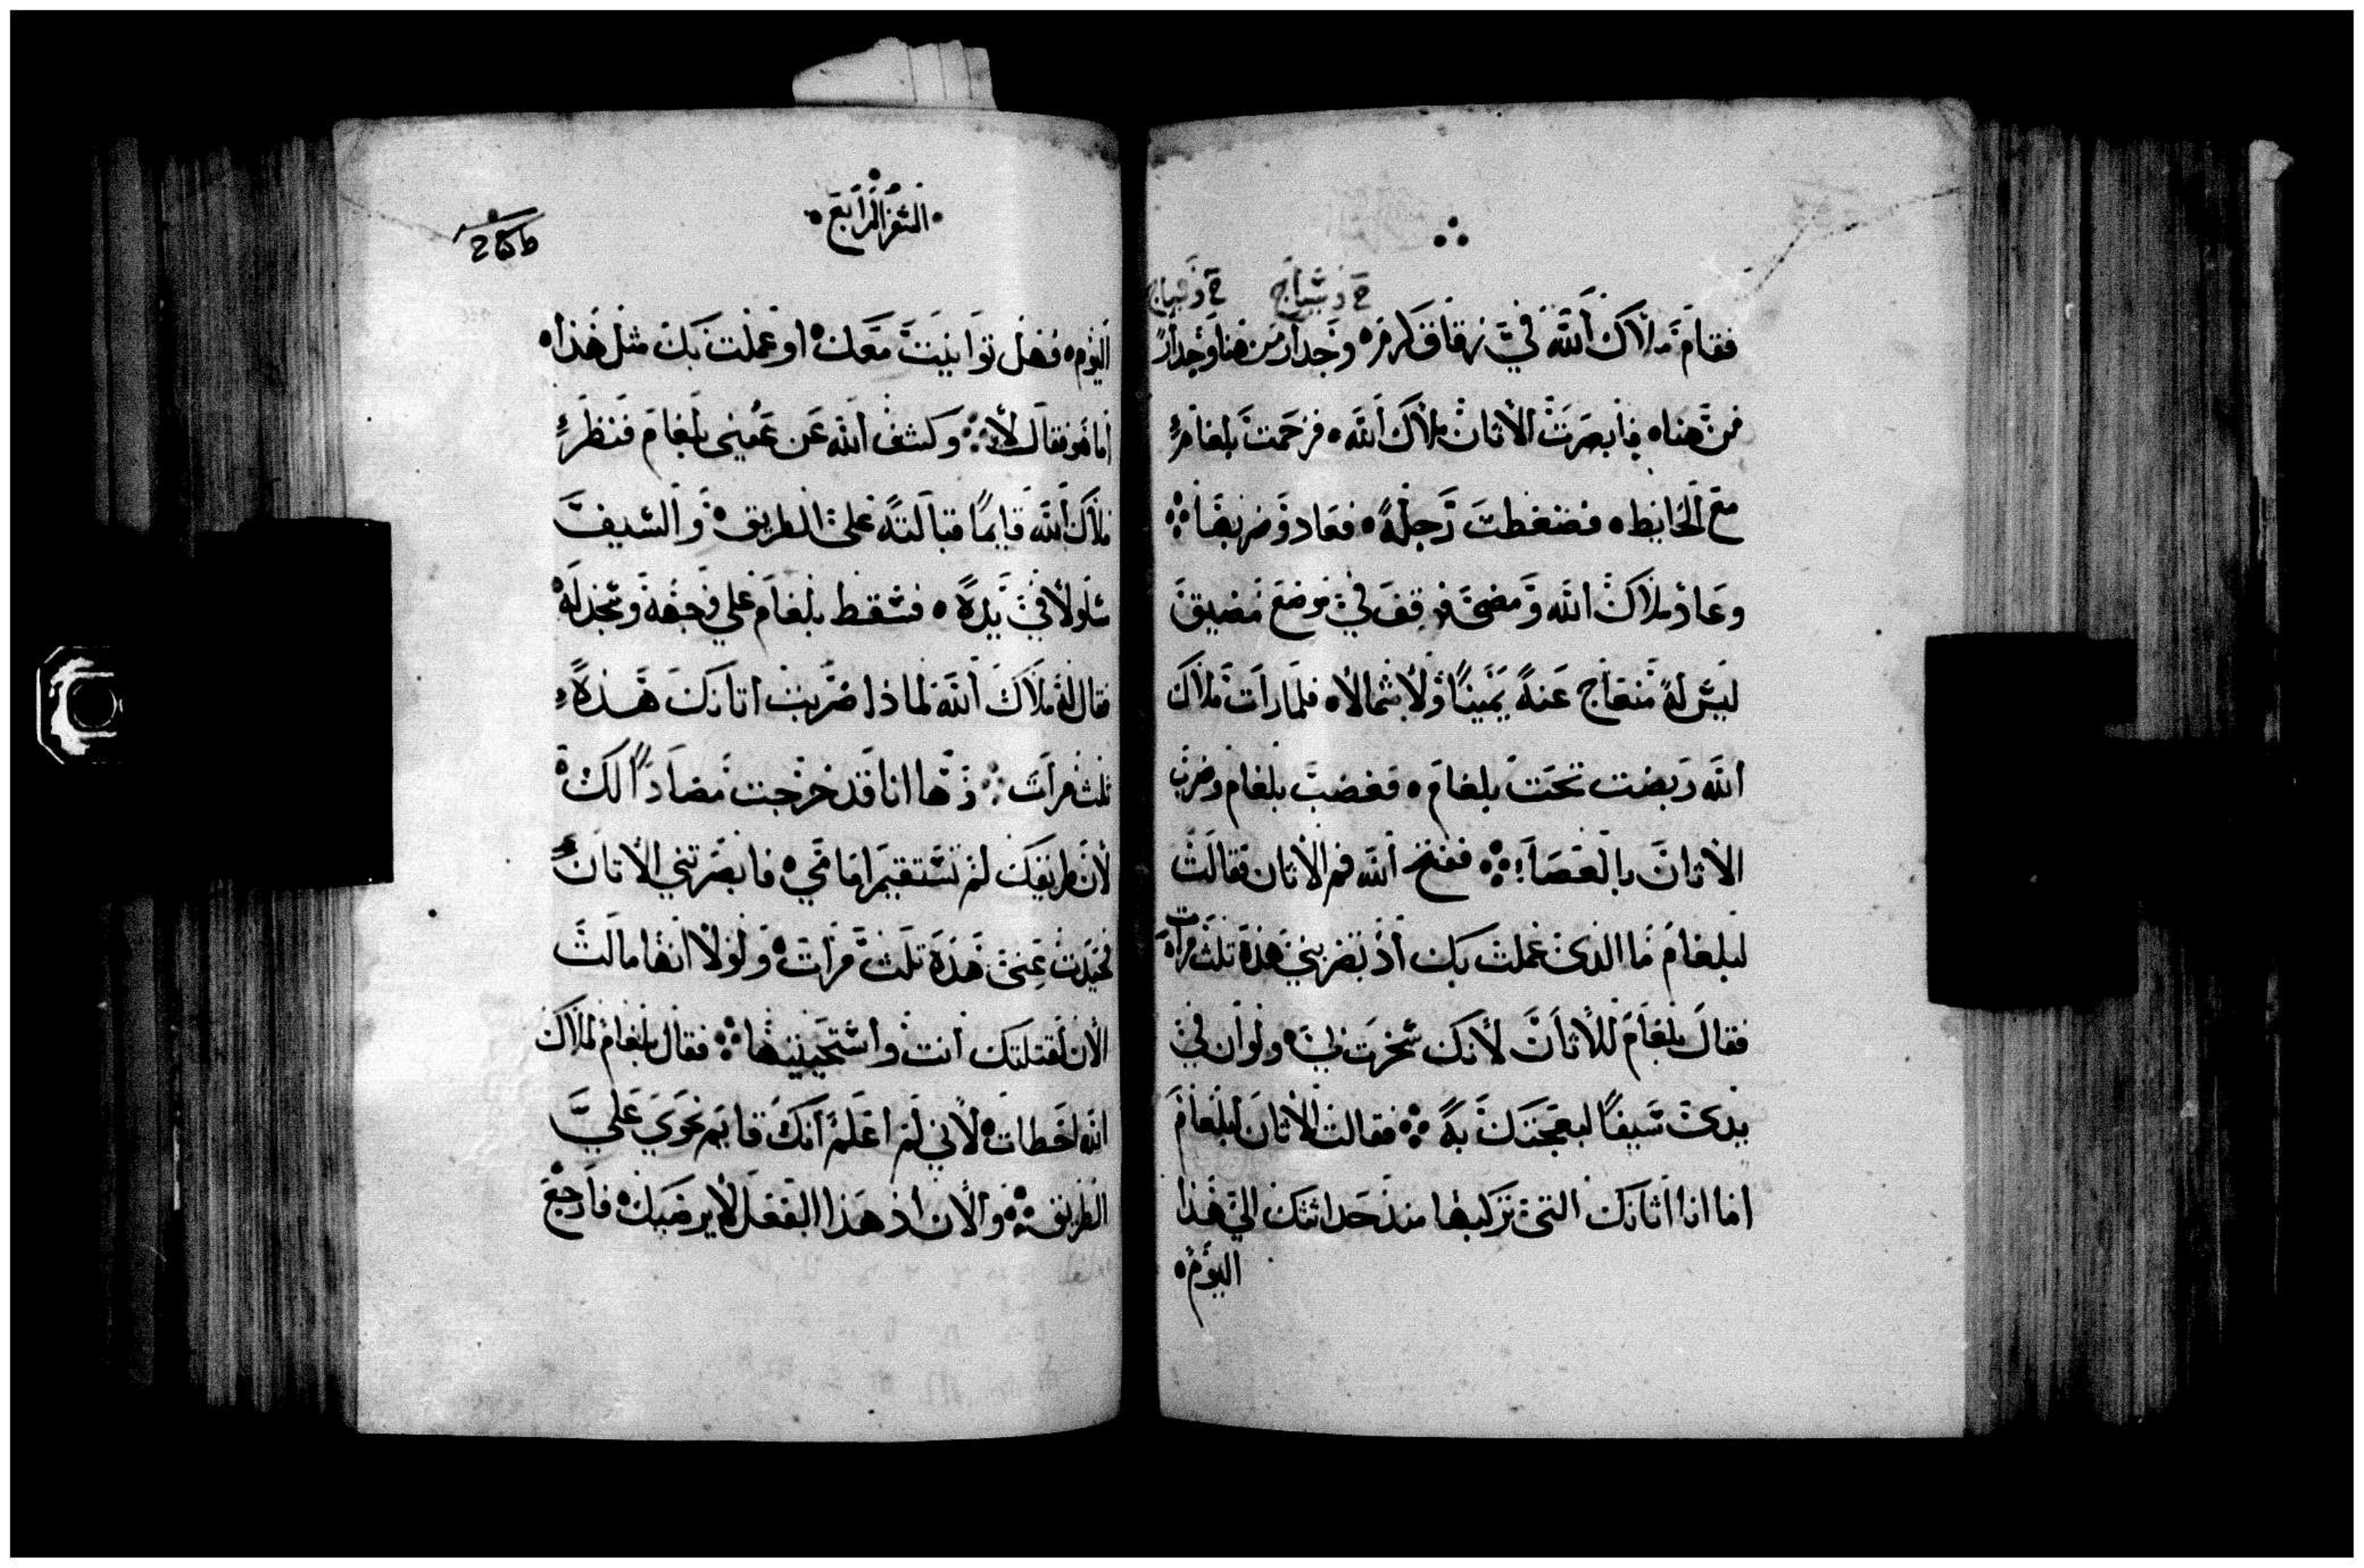 ح وسياج ح وسياج
فقام ملاك الله في زقاق كرم ٥ وجدار من هنا وجدار
من هنا ٥ فابصرت الاتان ملاك الله ٥ فزحمت بلعام
مع الحايط ٥ فضغطت رجله ٥ فعاد وضربها ܀
وعاد ملاك الله ومضى فوقف في موضع مضيق
ليس له منعاج عنه يمينًا ولا شمالا ٥ فلما رات ملاك
الله ربضت تحت بلعام ٥ فغضب بلعام وضرب
الاتان بالعصا ܀ ففتح الله فم الاتان فقالت
لبلعام ما الذى عملت بك اذ تضربني هذه ثلث مرات ٥
فقال بلعام للاتان لانك سخرت بي ٥ ولو ان في
يدى سيفًا لبعجتك به ܀ فقالت الاتان لبلعام
اما انا اتانك التى تركبها منذ حداثتك الي هذا
اليوم ٥
السفر الرابع
اليوم ٥ فهل توانيت معك ٥ او عملت بك مثل هذا ٥
اما هو فقال لا ܀ وكشف الله عن عيني بلعام فنظر
ملاك الله قايمًا قبالته على الطريق ٥ والسيف
مسلولا في يده ٥ فسقط بلعام علي وجهه وسجد له ٥
فقال له ملاك الله لماذا ضربت اتانك هذه
ثلث مرات ܀ وها انا قد خرجت مضادًا لك ٥
لان طريقك لم تستقيم امامي ٥ فابصرتني الاتان
فحيدت عنى هذه ثلث مرات ٥ ولولا انها مالت
الان لقتلتك انت واستحييتها ܀ فقال بلعام لملاك
الله اخطات ٥ لاني لم اعلم انك قايم نحوي علي
الطريق ܀ والان اذ هذا الفعل لا يرضيك ٥ فارجع